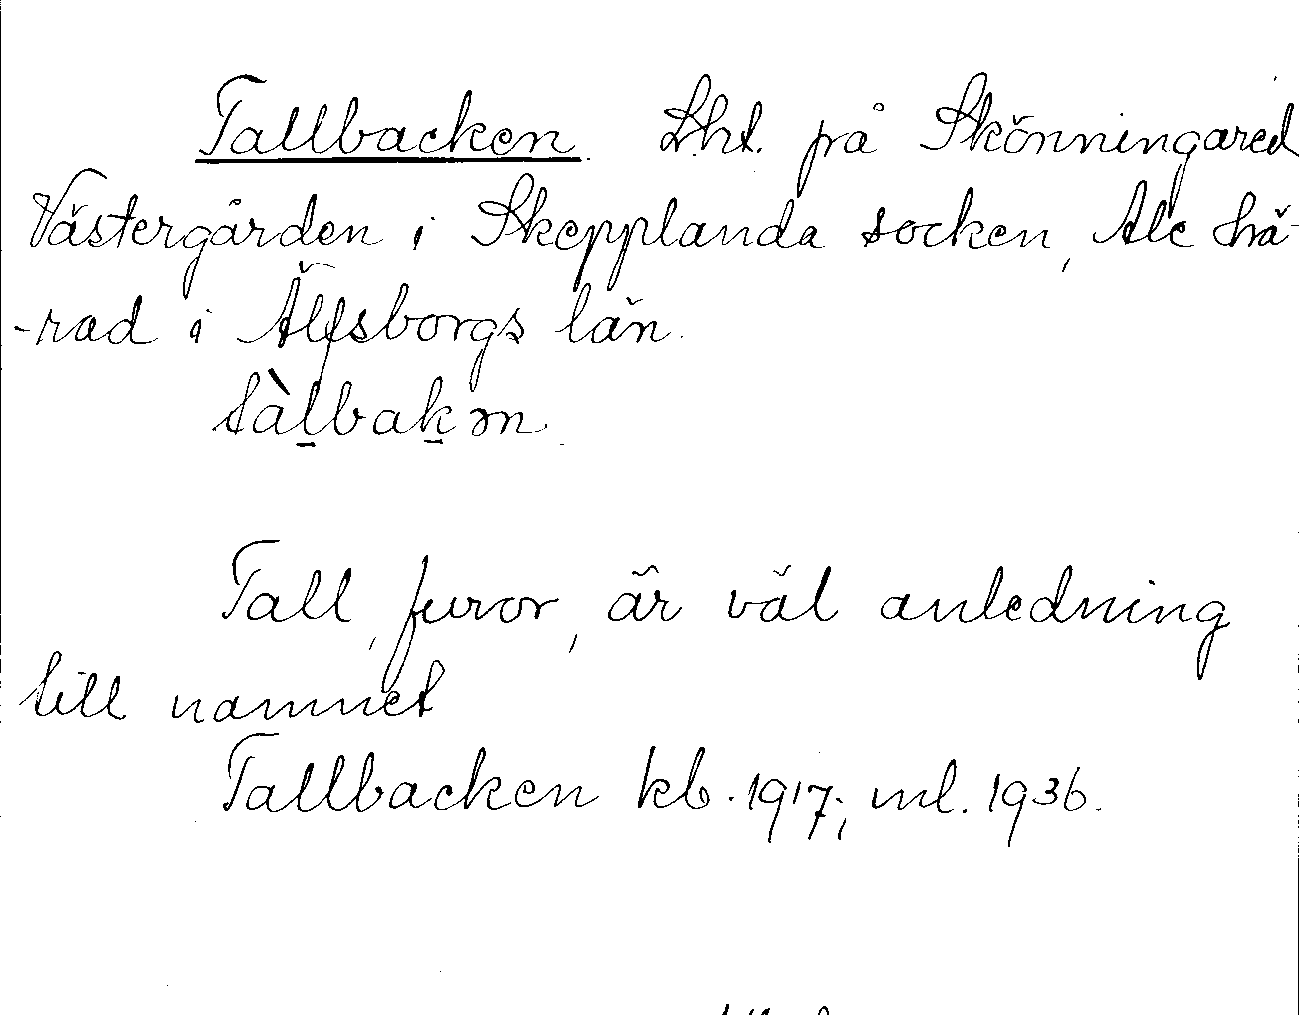 Tallbacken. Lht. på Skönningared
Västergården i Skepplanda socken, Ale hä-
-rad i Älfsborgs län.
tàl̲bak̲ən.
Tall, furor, är väl anledning
till namnet
Tallbacken kb. 1917; ml. 1936.